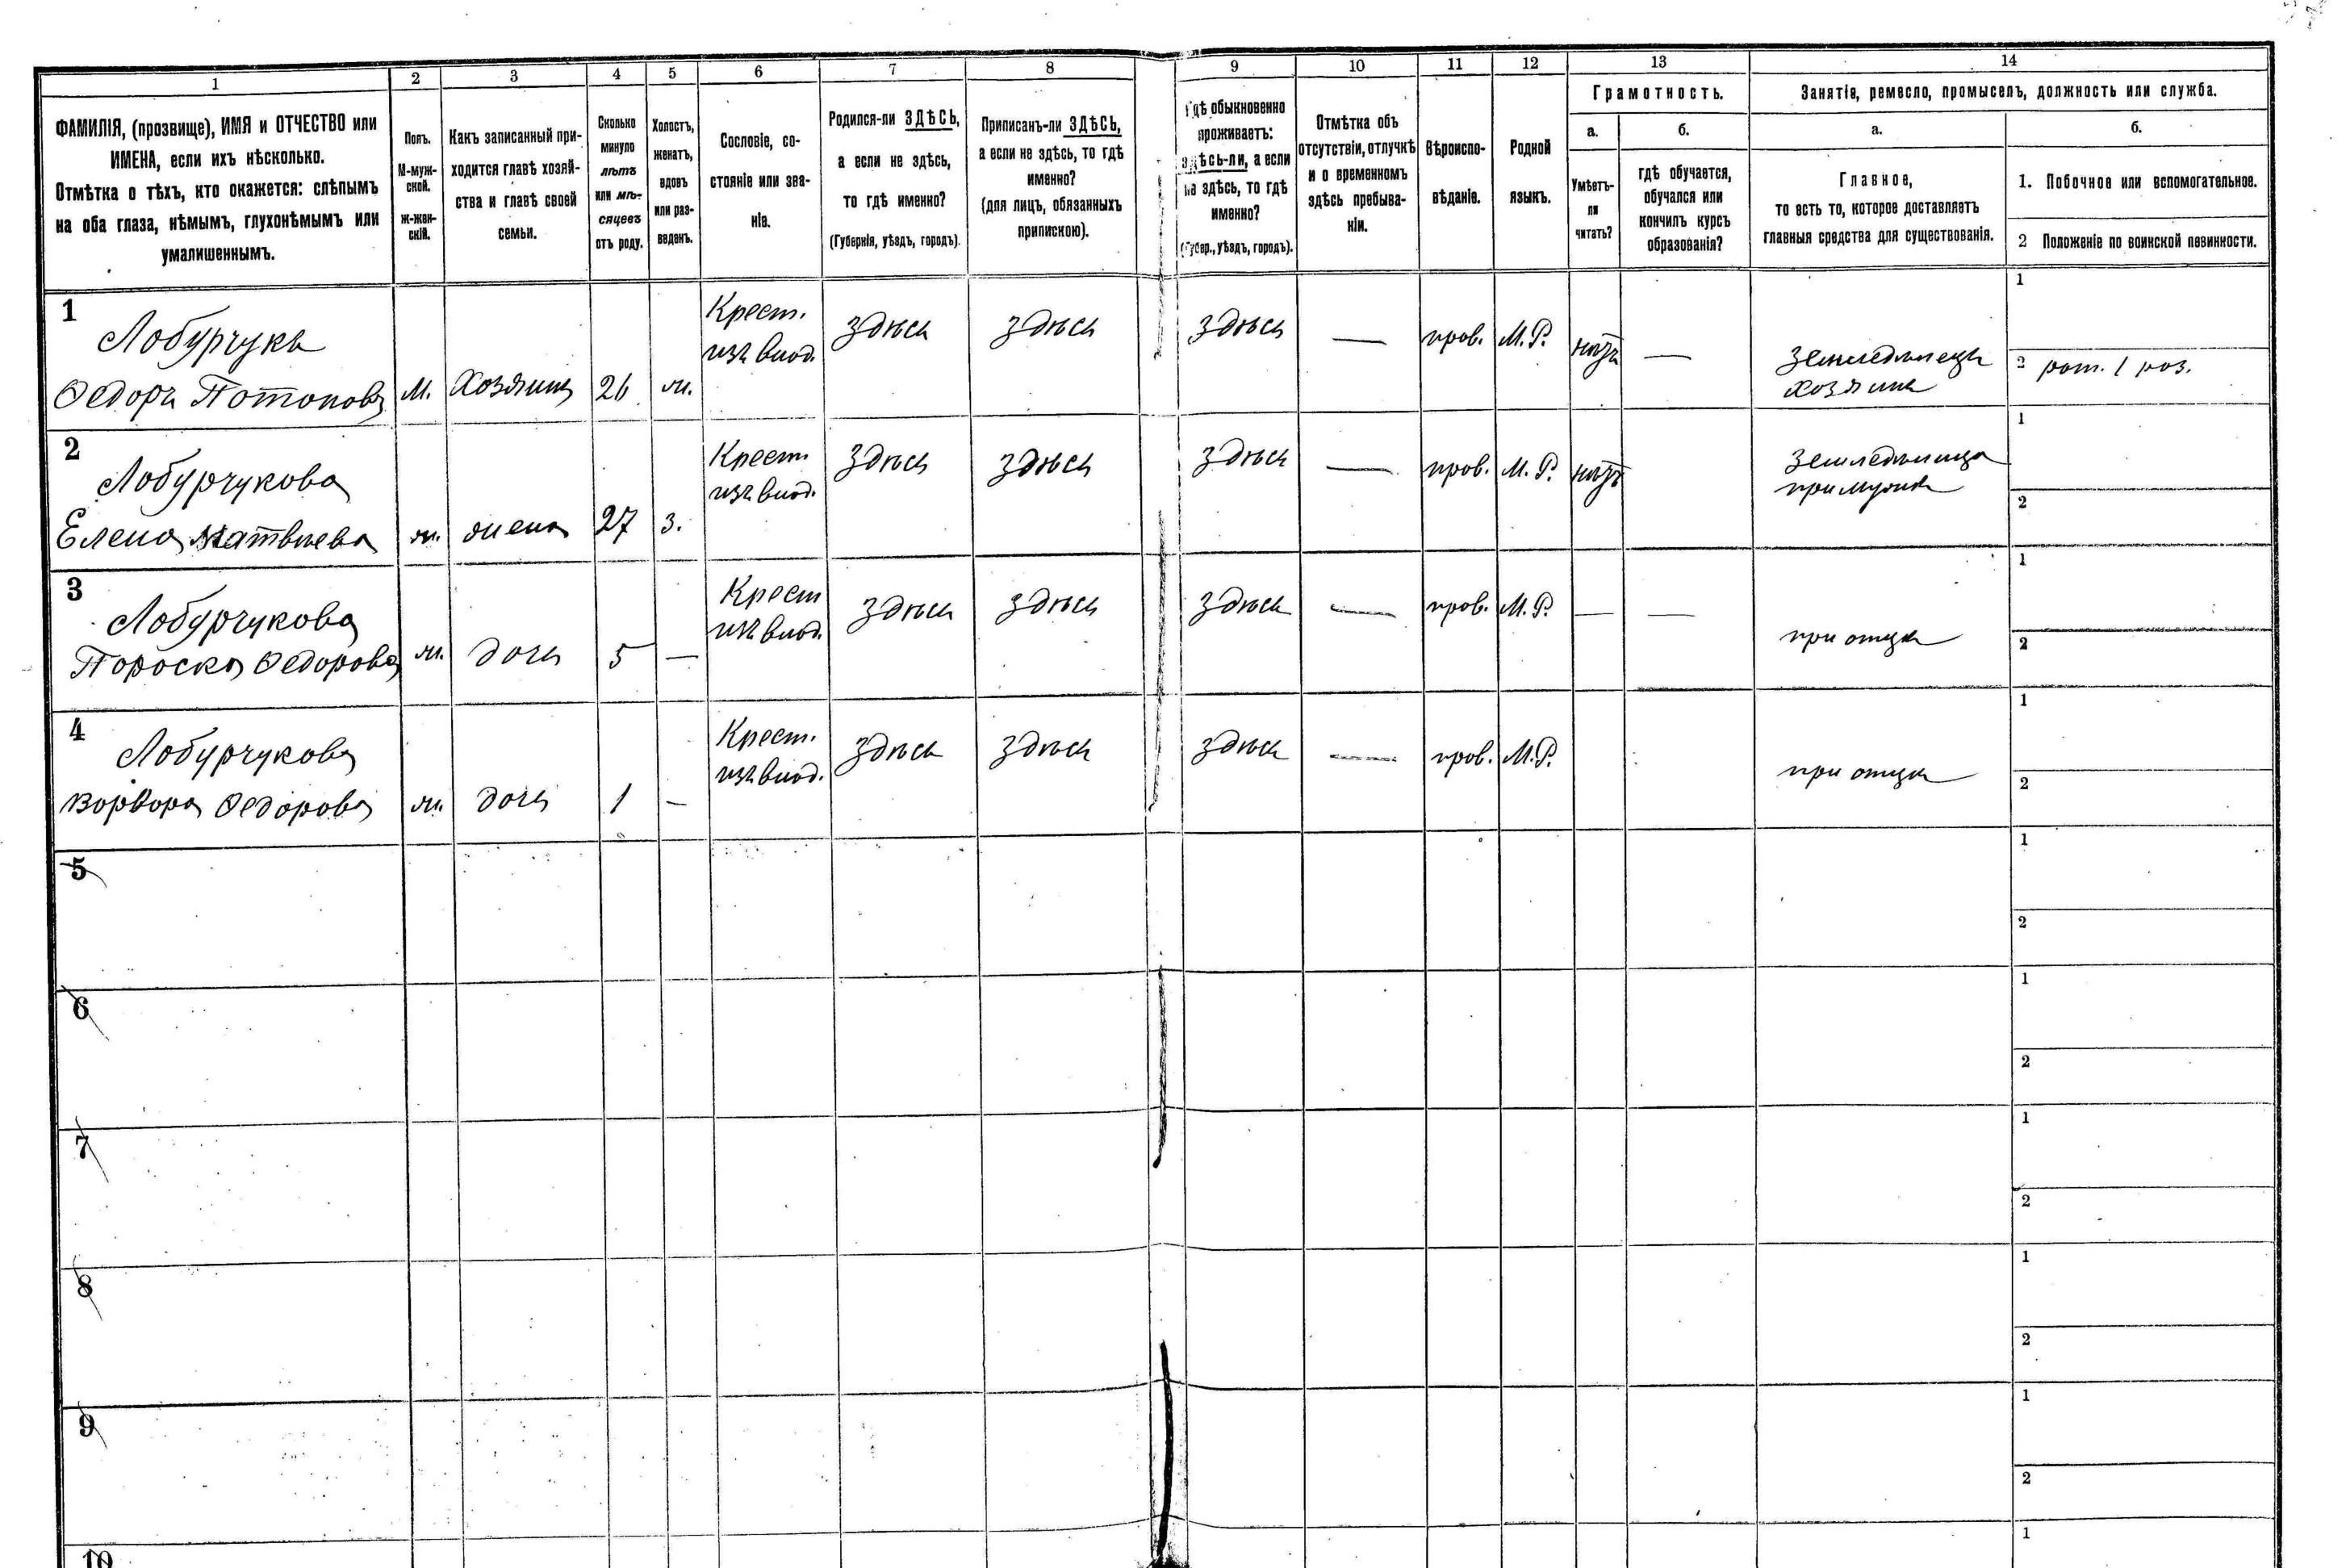 1 2 3 4 5 6 7 8 9 10 11 12 13 14
ФАМИЛІЯ, (прозвище), ИМЯ и ОТЧЕСТВО или
ИМЕНА, если ихъ нѣсколько.
Отмѣтка о тѣхъ, кто окажется: слѣпымъ
на оба глаза, нѣмымъ, глухонѣмымъ или
умалишеннымъ.
Полъ.
М-муж-
ской.
ж-жен-
скій.
Какъ записанный при-
ходится главѣ хозяй-
ства и главѣ своей
семьи.
Сколько
минуло
лѣтъ
или мѣ-
сяцевъ
отъ роду.
Холостъ,
женатъ,
вдовъ
или раз-
веденъ.
Сословіе, со-
стояніе или зва-
ніе.
Родился-ли ЗДѢСЬ,
а если не здѣсь,
то гдѣ именно?
(Губернія, уѣздъ, городъ).
Приписанъ-ли ЗДѢСЬ,
а если не здѣсь, то гдѣ
именно?
(для лицъ, обязанныхъ
припискою).
Гдѣ обыкновенно
проживаетъ:
здѣсь-ли, а если
не здѣсь, то гдѣ
именно?
(Губер., уѣздъ, городъ).
Отмѣтка объ
отсутствіи, отлучкѣ
и о временномъ
здѣсь пребыва-
ніи.
Вѣроиспо-
вѣданіе.
Родной
языкъ.
Грамотность.
а.
Умѣетъ-
ли
читать?
б.
гдѣ обучается,
обучался или
кончилъ курсъ
образованія?
Занятія, ремесло, промыселъ, должность или служба.
а.
Главное,
то есть то, которое доставляетъ
главныя средства для существованія.
б.
1. Побочное или вспомогательное.
2 Положеніе по воинской повинности.
1
Лобурчукъ
Ѳедоръ Потаповъ
М.
Хозяинъ
26
ж.
Крест.
изъ влад.
здѣсь
здѣсь
здѣсь
—
прав.
М. Р.
нѣтъ
—
Земледѣлецъ
хозяинъ
1
2 рат. 1 раз.
2
Лобурчукова
Елена Матвѣева
ж.
жена
27
з.
Крест.
изъ влад.
здѣсь
здѣсь
здѣсь
—
прав.
М. Р.
нѣтъ
Земледѣлица
при мужѣ
1
2
3
Лобурчукова
Параска Ѳедорова
ж.
дочь
5
—
Крест
изъ влад.
здѣсь
здѣсь
здѣсь
—
прав.
М. Р.
—
—
при отцѣ
1
2
4
Лобурчукова
Варвара Ѳедорова
ж.
дочь
1
—
Крест.
изъ влад.
здѣсь
здѣсь
здѣсь
—
прав.
М. Р.
при отцѣ
1
2
5
1
2
6
1
2
7
1
2
8
1
2
9
1
2
10
1